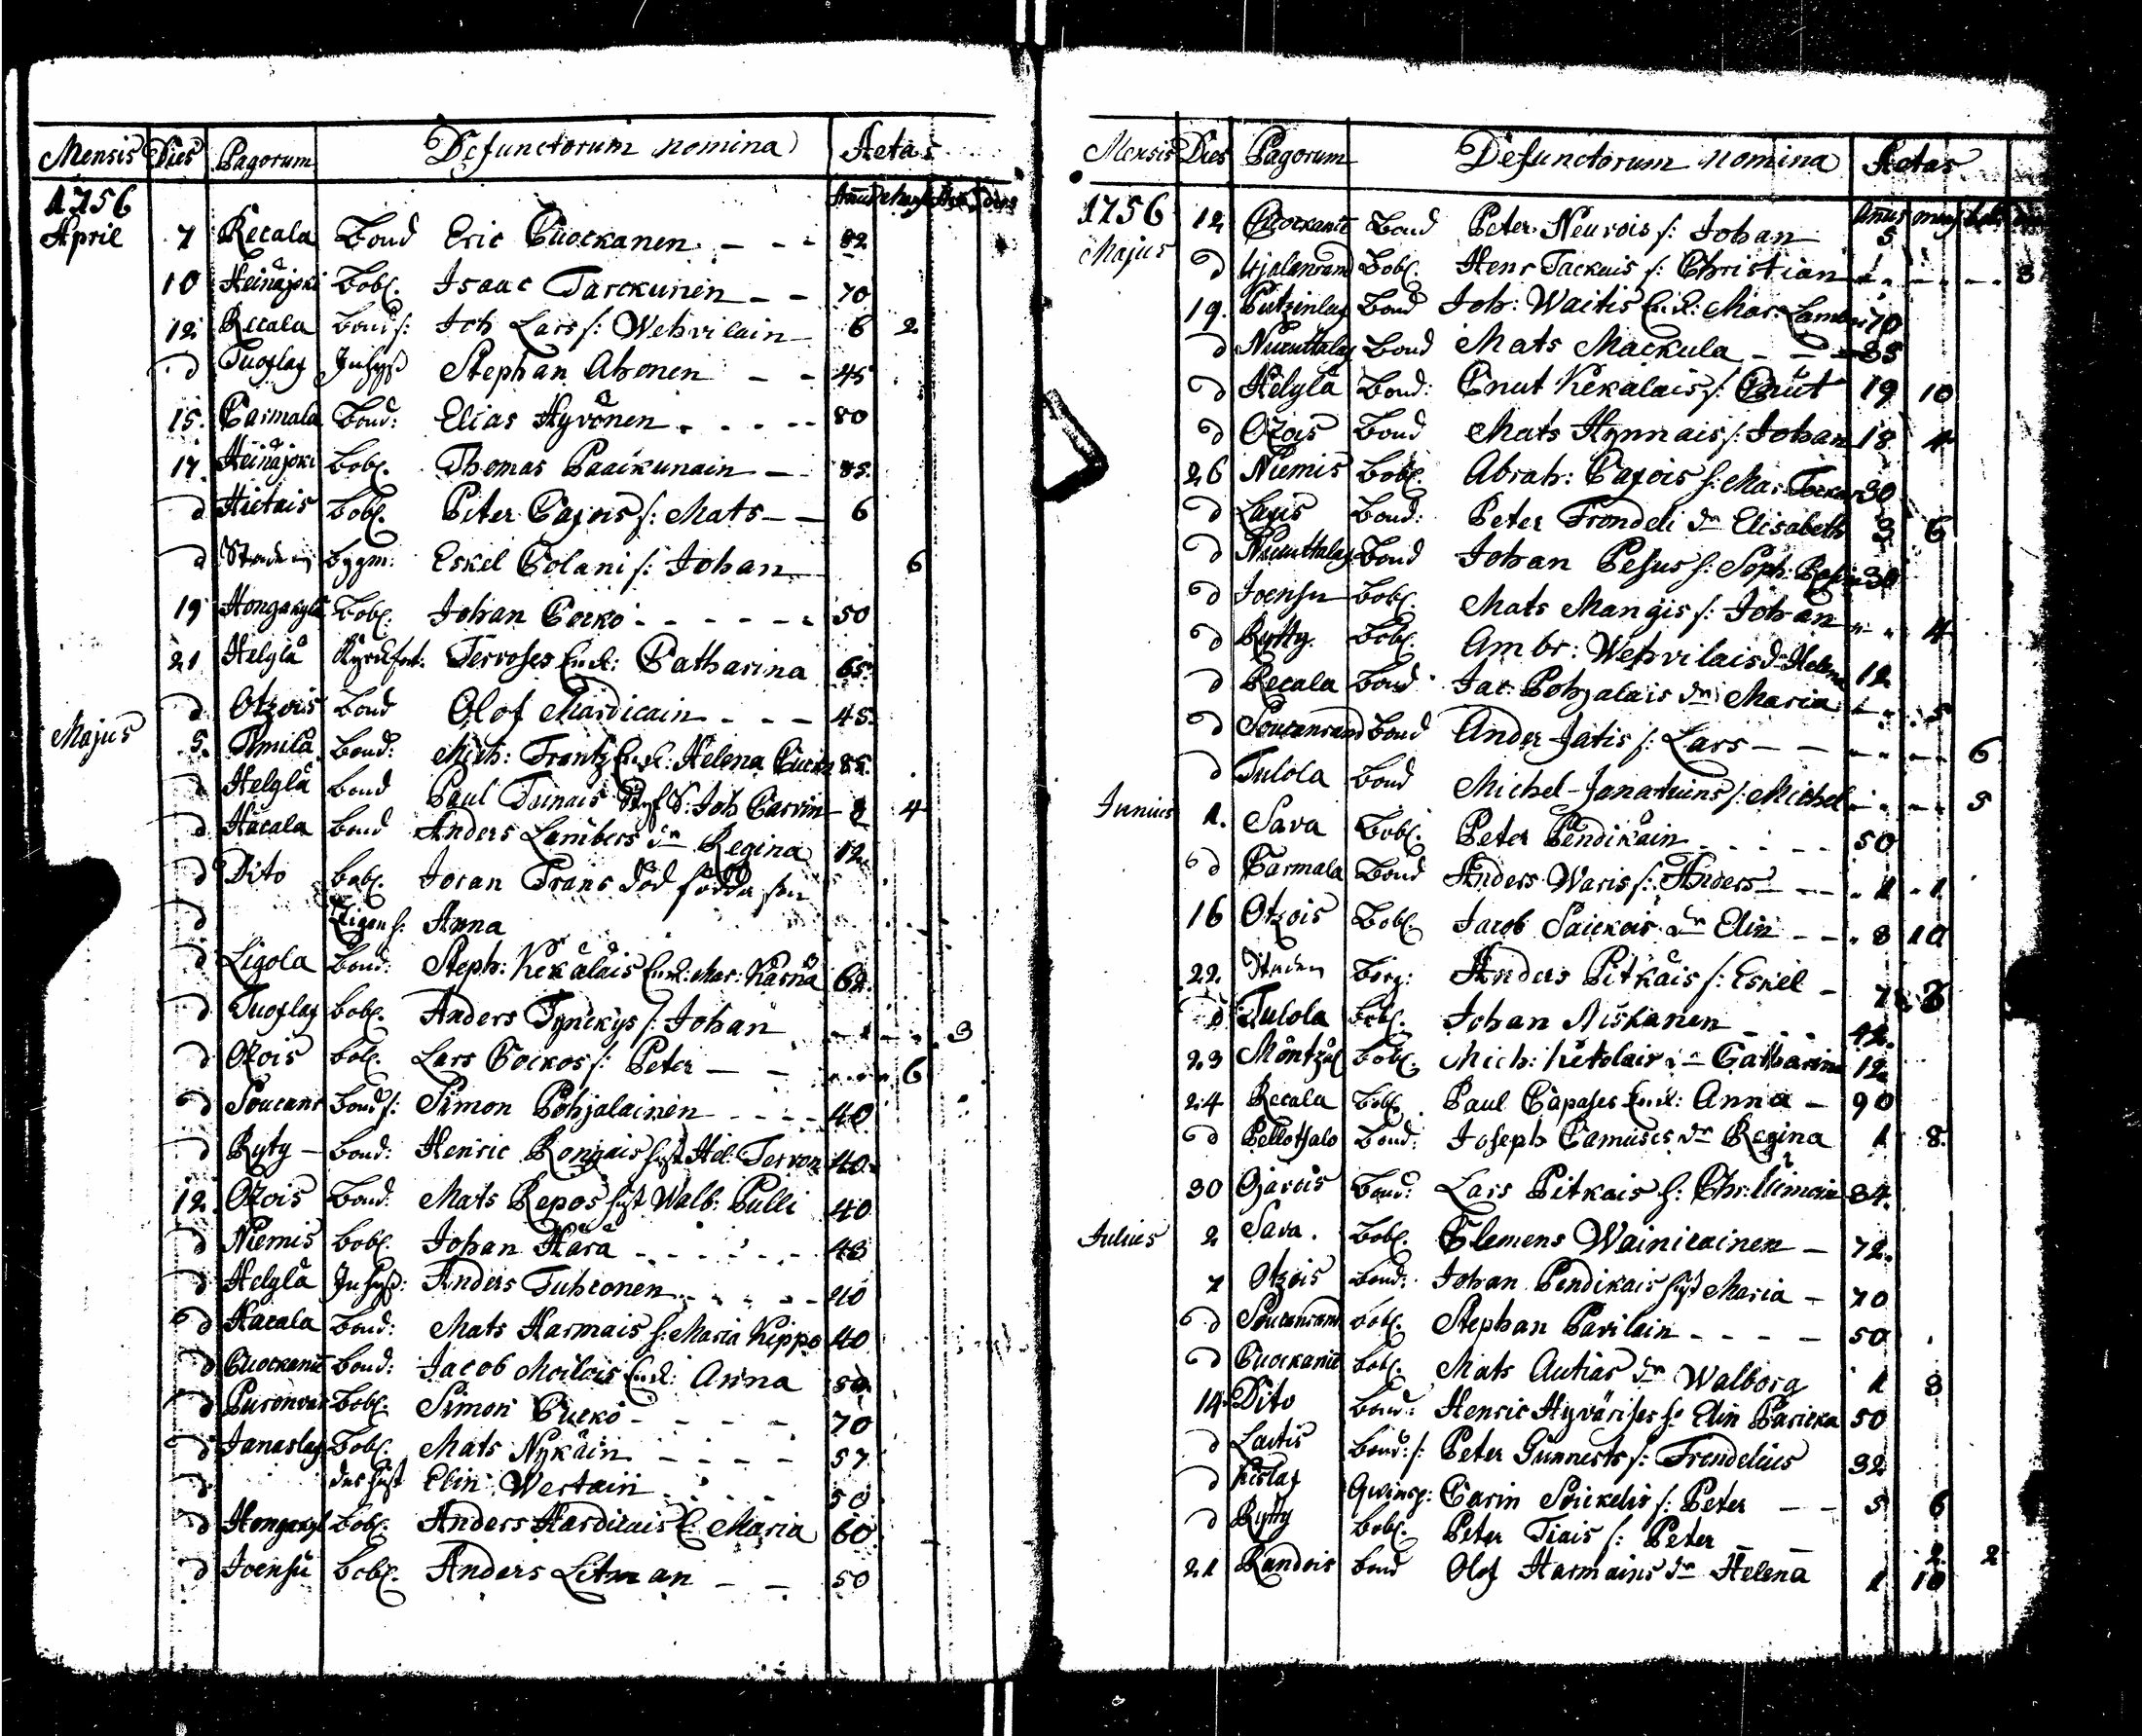 Mensis Dies Pagorum Defunctorum nomina Aetas
1756
April 7 Recala Bond Eric Cuockanen - - - 82
10 Heinäjoki Bobl. Isaac Tarckunen - - 70
12 Recala bond s: Joh Lars s: Wehvilain 6 2
d Tuoslax Inhys Stephan Ahonen - - 45
15. Carmala Bond: Elias Hyvönen - - - - 80
17. Heinäjoki Bobl. Thomas Paaikunain - 85.
d Hietais Bobl. Peter Caxois s: Mats - - 6
d Staden bygm: Eskel Colani s: Johan 6
19 Hongakylä Bobl. Johan Cocko - - - - - - 50
21 Helylä Tervoses Enk: Catharina 65.
d Otzois Bond Olof Mardicain - - - 45.
Majus 5. Amilä Bond: Mich: Frantz Enk: Helena 85.
d Helylä bond Paul Toinais Joh Carvin 4
d Hacala bond Anders Lambers dr Regina 12
d Dito bobl. Joran Frans död födde son
d Anna
d Ligola Bond: Steph: Kekäläis Enk: Mar: Käsnä 62.
d Tuoslax bobl. Anders Tynckys s: Johan - - - - 3
d Ozois bobl. Lars Cockos s: Peter - - 6
d Soucans bond s: Simon Pohjalainen - - - - 40
d Ryty - bond: Henric Rongais hust Hel: Tervon 40.
12. Ozois Bond: Mats Repos hust Walb: Pulli 40
d Niemis bobl. Johan Härä - - - - - - 43
d Helylä Inhys: Anders Tuhconen - - - - - 40
d Hacala bond: Mats Harmais h: Maria Kippo 40
d Cuockanie bond: Jacob Moilois Enk: Anna 50
d Puronvar Bobl. Simon Cucko - - - - 70
d Janaslax Bobl. Mats Nykäin - - - - 57
d des hust Elin Westain 50
d Hongakyl Bobl. Anders Hardicais E. Maria 60
d Joensu bobl. Anders Litman - - 50
Mensis Dies Pagorum Defunctorum nomina Aetas
1756
Majus 12 Cuockanie Bond Peter Neurois s: Johan 5
d Ujalanrand Bobl. Henr Tackuis s: Christian - - - - 3
19. Putzinlax Bond Joh: Waitis Enk: Mar: Lambers 70
d Nuruttalax Bond Mats Mackula - - - 85
d Helylä Bond: Cnut Kekälais s: Cnut 19 10
d Ozois Bond Mats Hynnais s: Johan 18 4
26 Niemis Bobl. Abrah: Caxois h: Mar: 30
d Laxis Bond: Peter Frondeli dr Elisabeth 3 6
d Nuruttalax Bond Johan Pesus h: Soph: 30
d Joensu Bobl. Mats Mangis s: Johan - - 4
d Rytty Bobl. Ambr: Wehvilais dr Helena 12
d Recala Bond Jac: Pohjalais dr Maria - - 5
d Soucanrand Bond Ander Jatis s: Lars - - - - - - 6
d Tulola Bond Michel Janatuins s: Michel - - - - 5
Junius 1. Sava Bobl. Peter Pendikäin - - - - - 50
d Carmala Bond Anders Waris s: Anders - - - 1 1
16 Otzois Bobl. Jacob Saickois dr Elin - - 8 10
22. Staden Borg: Anders Pitkäis s: Eskel -
d Tulola Bobl. Johan Niskanen - - - 42.
23 Möntzäl Bobl. Mich: Ketolais dr Catharina 12
24 Recala Bobl. Paul Capases Enk: Anna - 90
d Pellotsalo Bond: Joseph Camuses dr Regina 1 8.
30 Ojarois Bond: Lars Pitkais h: Chr: 34.
Julius 2 Sava. Bobl. Clemens Wainicainen - 72.
7 Otzois bond: Johan Pendikais hust Maria - 70
d Soucanrand bobl. Stephan Pavilain - - - - 50
d Cuockanie bobl. Mats Autias dr Walborg 1 3
14 Dito bond: Henric Hyvärises h: Elin Paricka 50
d Laitis bond: s: Peter Gunnerts s: Frondelius 32
d Kirslax Qwinsp: Carin Soickelis s: Peter - - 5 6
d Rytty bobl. Peter Tiais s: Peter - - 2 2
21 Randois bond Olof Harmains dr Helena 1 10